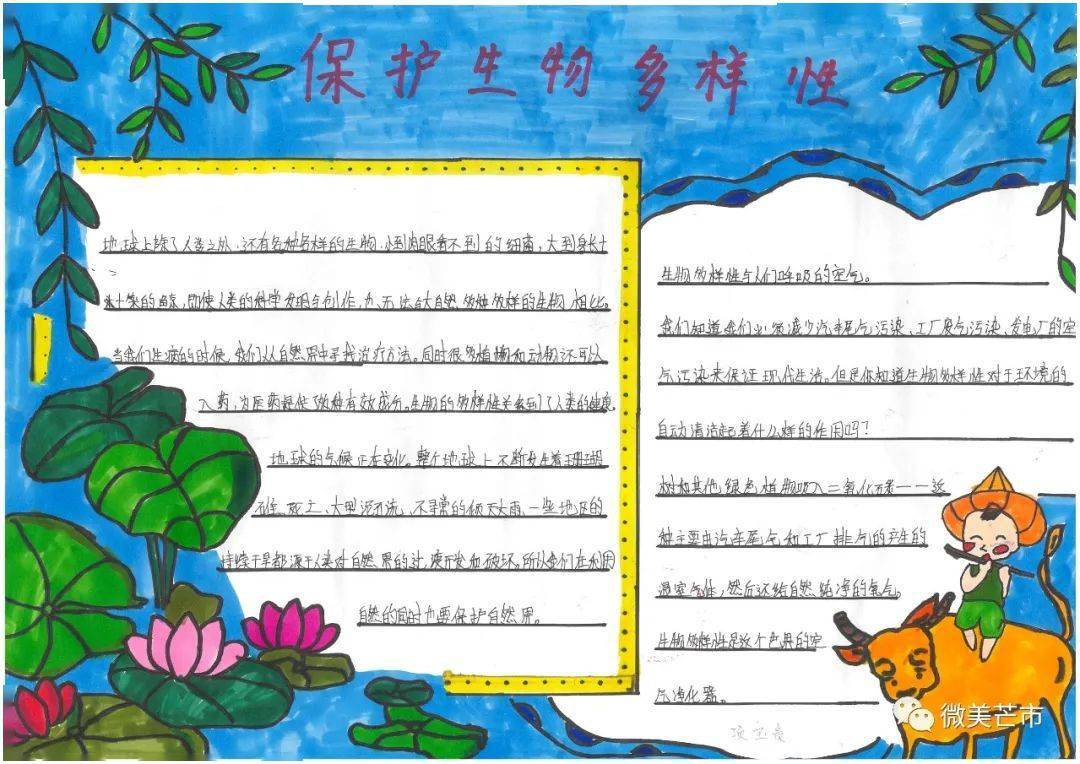 保护生物多样性
地球上除了人类之外，还有各种各样的生物，小到肉眼看不到的细菌，大到身长十
米的鲸，即使人类的科学发明与创作，也无法与大自然多种多样的生物相比。
当我们生病的时候，我们从自然界中寻找治疗方法。同时很多植物和动物还可以
入药，为医药提供了多种有效成分。生物的多样性关系到了人类的健康
地球的气候正在变化。整个地球上不断发生着珊瑚
死亡、大型河流、不寻常的倾天大雨，一些地区的
持续干旱都源于人类对自然界的过度开发和破坏。所以我们在利用
自然的同时也要保护自然界。
生物多样性与人们呼吸的空气。
我们知道我们必须减少汽车尾气污染、工厂废气污染、发电厂的空
气污染来保证现代生活。但是你知道生物多样性对于环境的
自动清洁起着什么样的作用吗？
树和其他绿色植物吸入二氧化碳——一
种主要由汽车尾气和工厂排气的产生的
温室气体，然后还给自然洁净的氧气。
生物多样性是这个世界的空
气净化器。
微美芒市